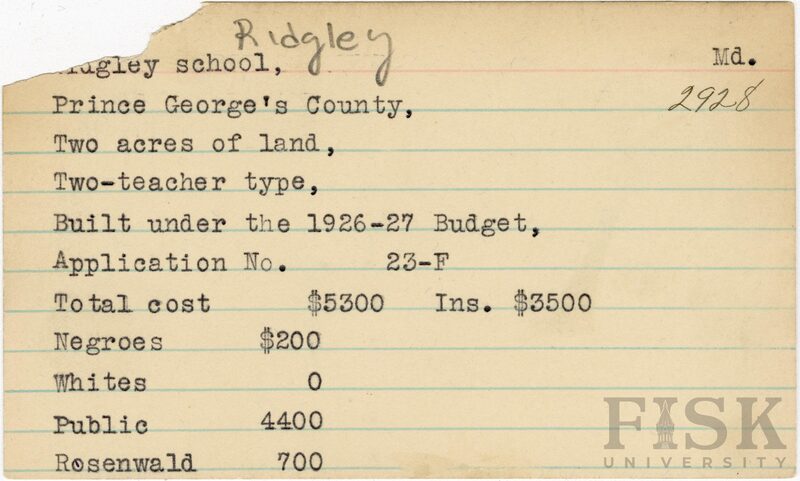 Ridgley
Ridgley school, Md.
Prince George's County, 2928
Two acres of land,
Two-teacher type,
Built under the 1926-27 Budget,
Application No. 23-F
Total cost $5300 Ins. $3500
Negroes $200
Whites 0
Public 4400
Rosenwald 700
FISK
UNIVERSITY